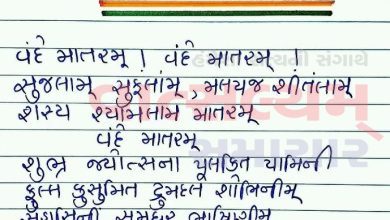 વંદે માતરમ્ । વંદે માતરમ્ ।
સુજલામ્ સુફલામ્, મલયજ શીતલામ્
શસ્ય શ્યામલામ્ માતરમ્
વંદે માતરમ્
શુભ્ર જ્યોત્સના પુલકિત યામિની
ફુલ્લ કુસુમિત દ્રુમદલ શોભિનીમ્